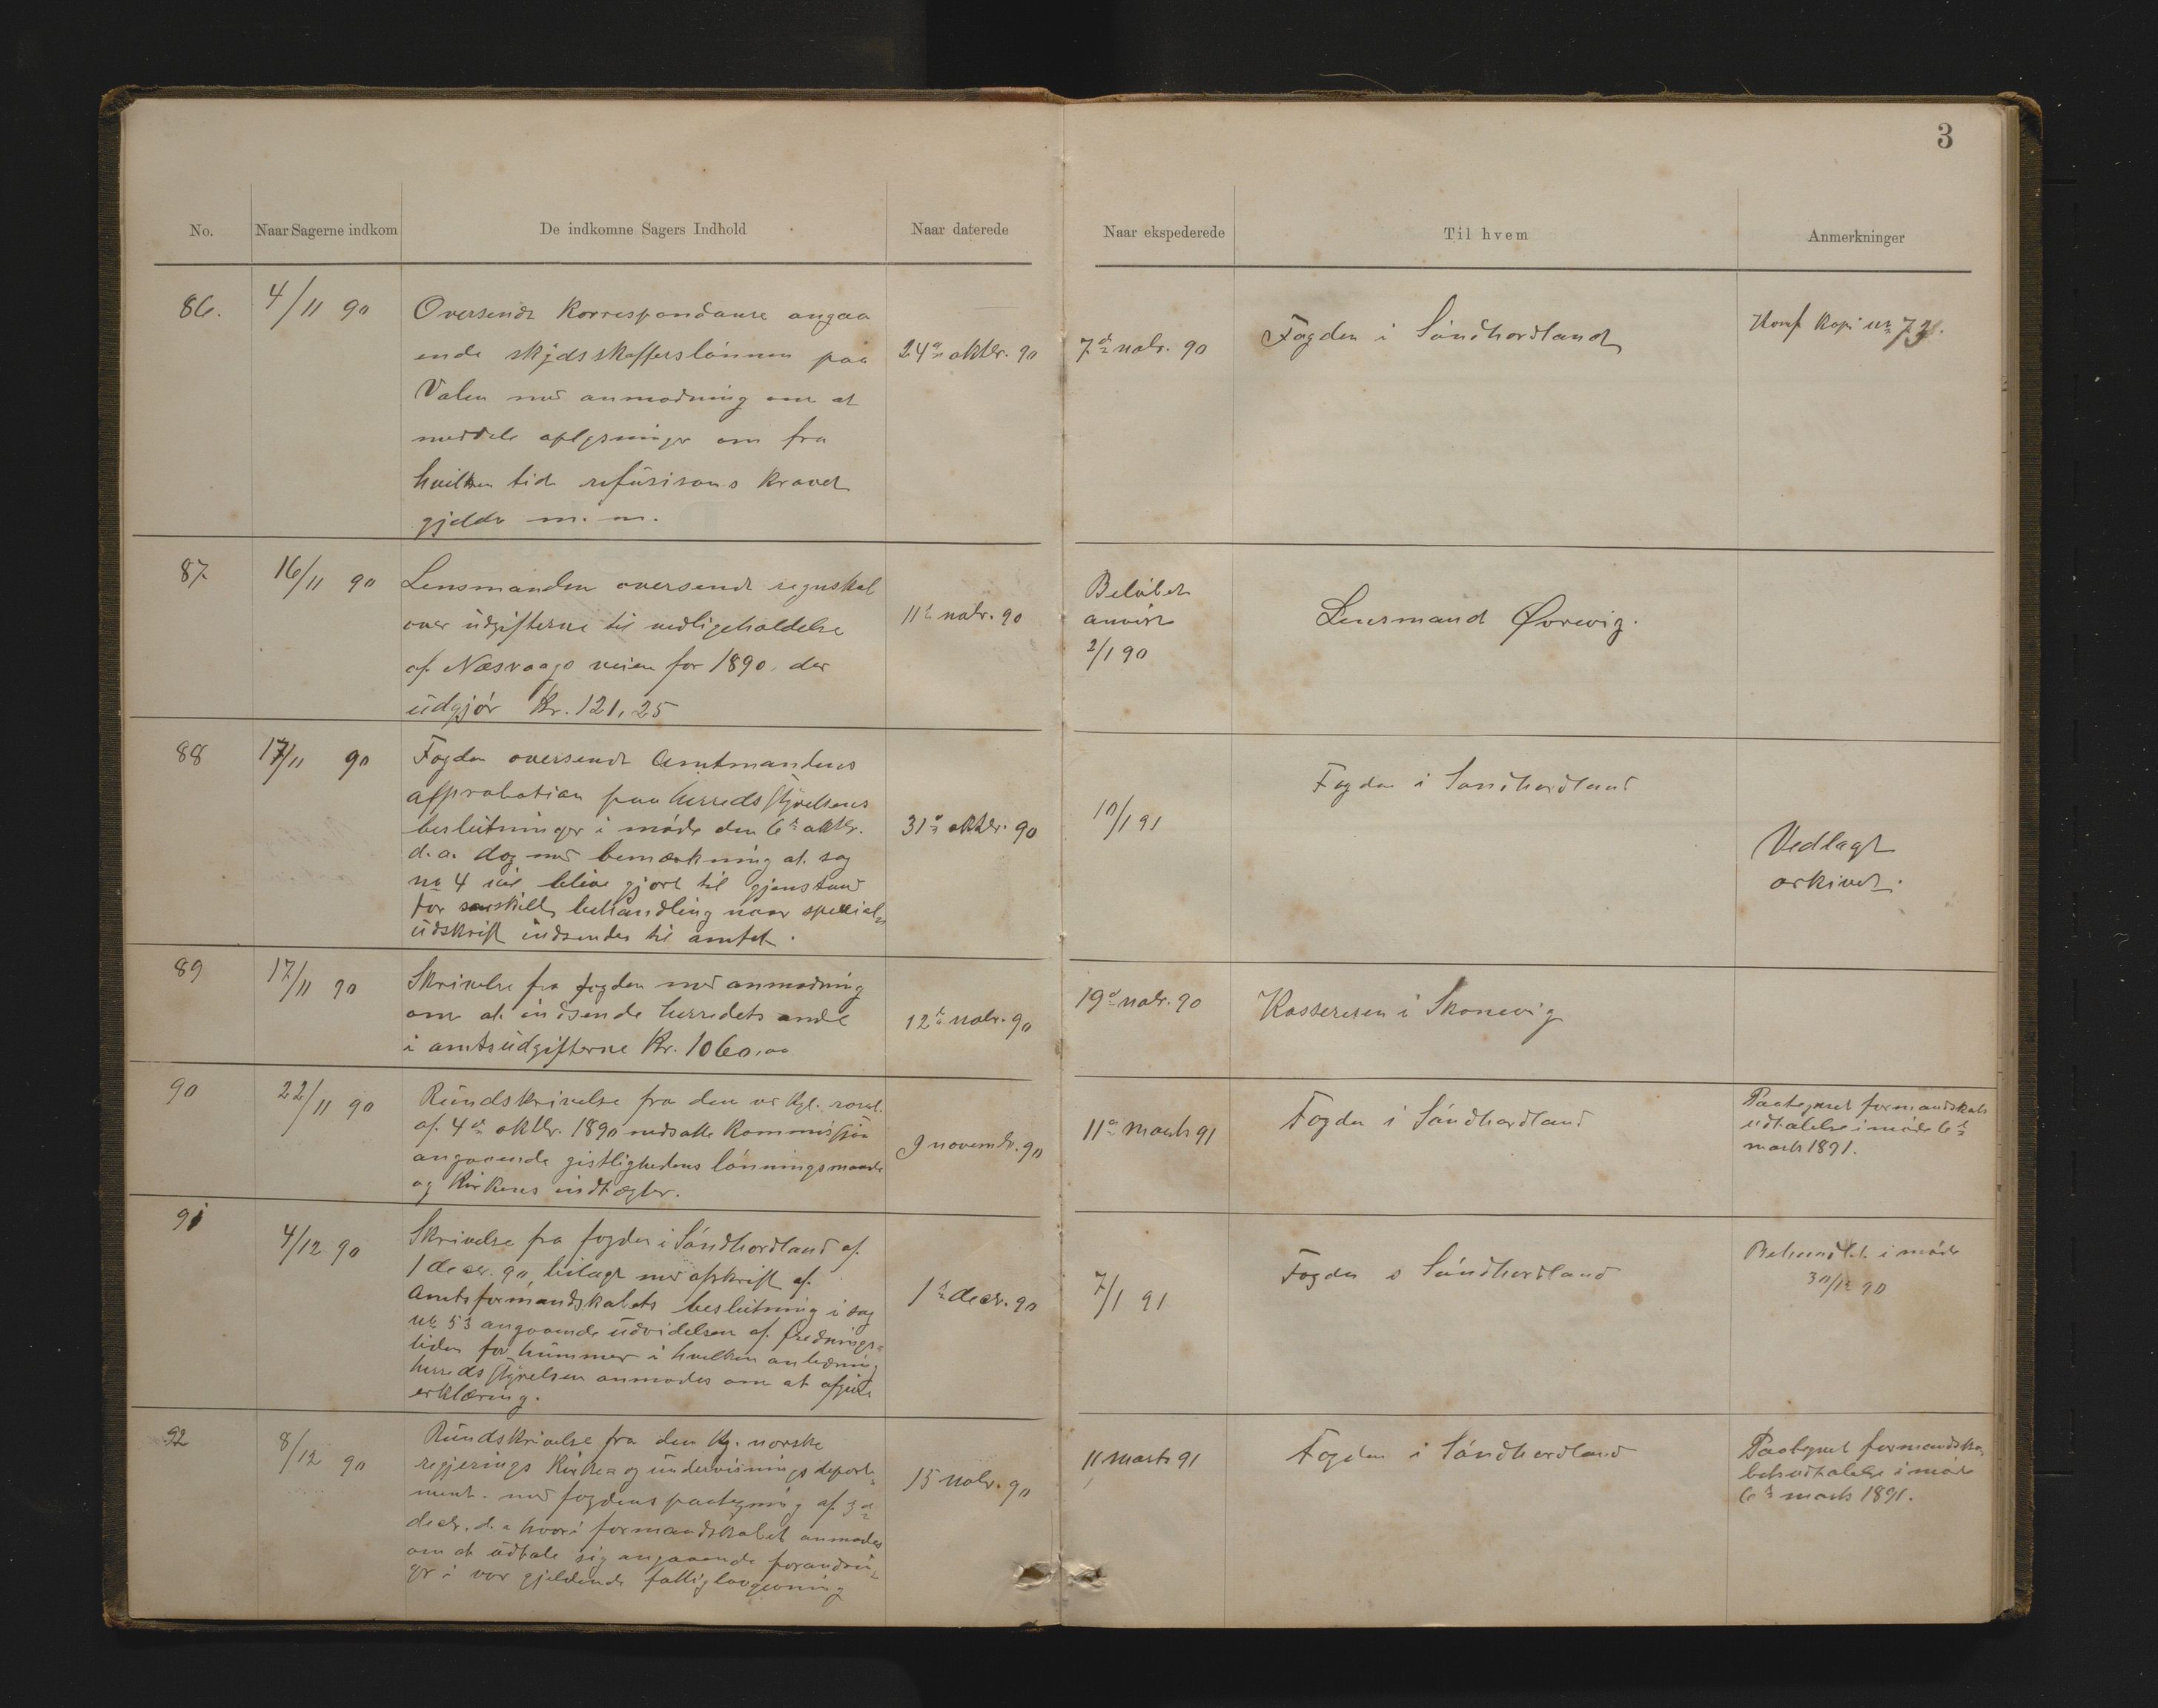 3
No. Naar Sagerne indkom De indkomne Sagers Indhold Naar daterede Naar ekspederede Til hvem Anmerkninger
86. 4/11 90
Oversendt korrespondanse angaa
ende skydsskafferslønnen paa
Valen med anmodning om at
meddele oplysninger om fra
hvilken tid refusions kravet
gjelder m. m.
24de oktbr. 90
7de nobr. 90
Fogden i Søndhordland
Konf Kopi no
87. 16/11 90
Lensmanden oversendt regnskab
over udgifterne til vedligeholdelse
af Næsvaags veien for 1890, der
udgjør Kr. 121,25
11te nobr. 90
Beløbet
anvist
2/1 90
Lensmand Øvrevig.
88 17/11 90
Fogden oversendt Amtmandens
approbation paa herredsstyrelsens
beslutninger i møde den 6te oktbr.
d. a. dog med bemærkning at sag
no 4 vil blive gjort til gjenstand
for særskilt behandling naar special-
udskrift indsendes til amtet.
31te oktbr. 90
10/1 91
Fogden i Søndhordland
Vedlagt
arkivet.
89 17/11 90
Skrivelse fra fogden med anmodning
om at indsende herredets andel
i amtsudgifterne Kr. 1060,00
12te nobr. 90
19de nobr. 90
Kassereren i Skonevig
90 22/11 90
Rundskrivelse fra den ved Kgl. resol.
af 4de oktbr. 1890 nedsatte Kommission
angaaende geistlighedens lønningsmaade
og Kirkens indtægter.
9 novembr. 90
11te marts 91
Fogden i Søndhordland
Paategnet formandskabs
udtalelse i møde 6te
marts 1891.
91 4/12 90
Skrivelse fra fogden i Søndhordland af
1 decbr. 90, bilagt med afskrift af
Amtsformandskabets beslutning i sag
no 53 angaaende udvidelsen af frednings-
tiden for hummer i hvilken anledning
herredsstyrelsen anmodes om at afgive
erklæring.
1te decbr. 90
7/1 91
Fogden i Søndhordland
Behandlet i møde
30/12 90
92 8/12 90
Rundskrivelse fra den Kg. norske
regjerings Kirke- og undervisnings departe-
ment. med fogdens paategning af 3de
decbr. d. a hvori formandskabet anmodes
om at udtale sig angaaende forandrin-
ger i vor gjeldende fattiglovgivning
15 nobr. 90
11 marts 91
Fogden i Søndhordland
Paategnet formandska-
bets udtalelse i møde
6te marts 1891.